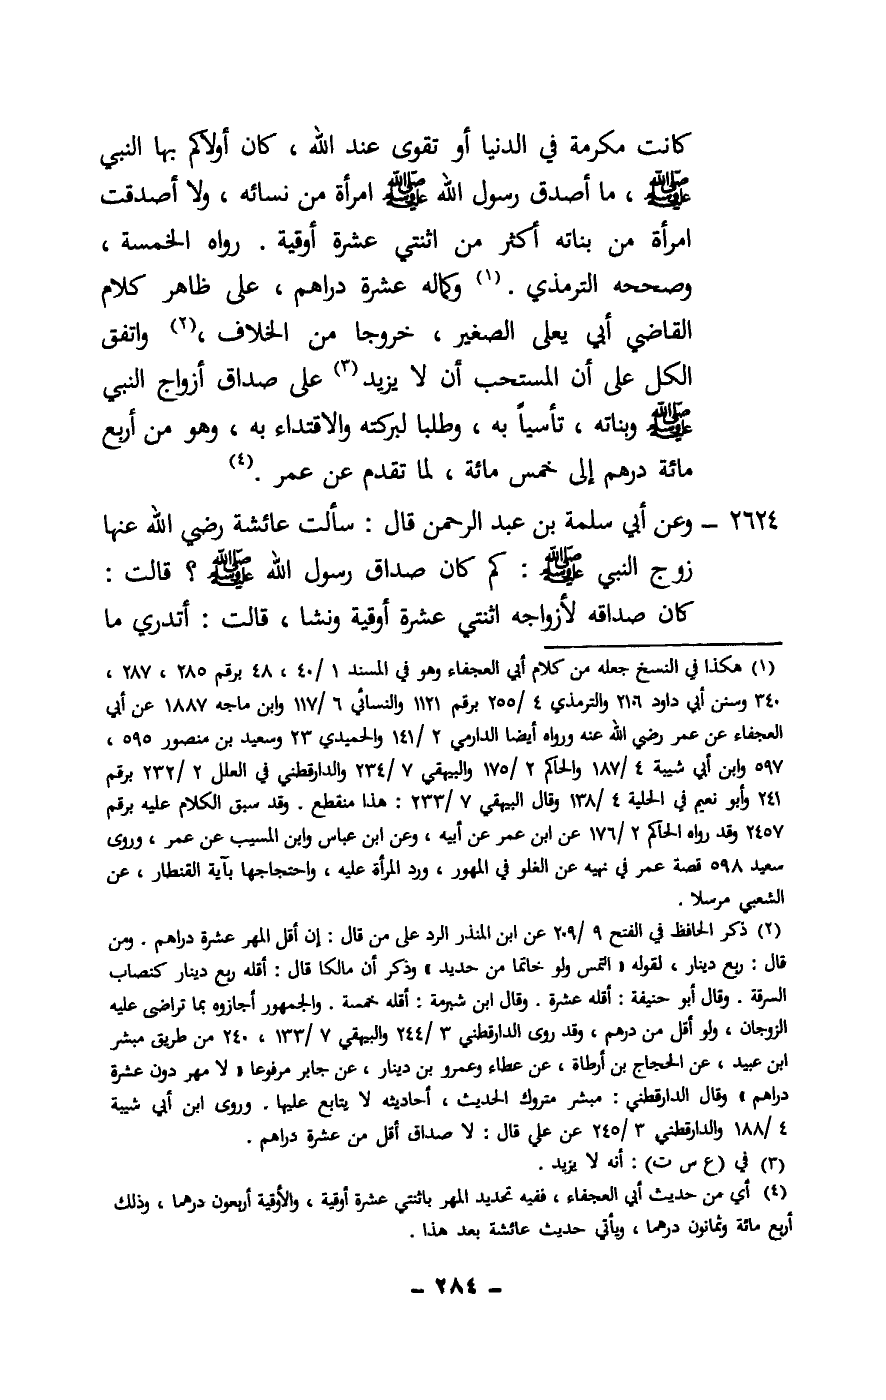 كانت مكرمة في الدنيا أو تقوى عند الله ، كان أولاكم بها النبي
ﷺ ، ما أصدق رسول الله ﷺ امرأة من نسائه ، ولا أصدقت
امرأة من بناته أكثر من اثنتي عشرة أوقية . رواه الخمسة ،
وصححه الترمذي .(١) وكماله عشرة دراهم ، على ظاهر كلام
القاضي أبي يعلى الصغير ، خروجا من الخلاف ،(٢) واتفق
الكل على أن المستحب أن لا يزيد(٣) على صداق أزواج النبي
ﷺ وبناته ، تأسياً به ، وطلبا لبركته والاقتداء به ، وهو من أربع
مائة درهم إلى خمس مائة ، لما تقدم عن عمر .(٤)
٢٦٢٤ ــ وعن أبي سلمة بن عبد الرحمن قال : سألت عائشة رضي الله عنها
زوج النبي ﷺ : كم كان صداق رسول الله ﷺ ؟ قالت :
كان صداقه لأزواجه اثنتي عشرة أوقية ونشا ، قالت : أتدري ما
(١) هكذا في النسخ جعله من كلام أبي العجفاء وهو في المسند ١ /٤٠ ، ٤٨ برقم ٢٨٥ ، ٢٨٧ ،
٣٤٠ وسنن أبي داود ٢١٠٦ والترمذي ٤ /٢٥٥ برقم ١١٢١ والنسائي ٦ /١١٧ وابن ماجه ١٨٨٧ عن أبي
العجفاء عن عمر رضي الله عنه ورواه أيضا الدارمي ٢ /١٤١ والحميدي ٢٣ وسعيد بن منصور ٥٩٥ ،
٥٩٧ وابن أبي شيبة ٤ /١٨٧ والحاكم ٢ /١٧٥ والبيهقي ٧ /٢٣٤ والدارقطني في العلل ٢ /٢٣٢ برقم
٢٤١ وأبو نعيم في الحلية ٤ /١٣٨ وقال البيهقي ٧ /٢٣٣ : هذا منقطع . وقد سبق الكلام عليه برقم
٢٤٥٧ وقد رواه الحاكم ٢ /١٧٦ عن ابن عمر عن أبيه ، وعن ابن عباس وابن المسيب عن عمر ، وروى
سعيد ٥٩٨ قصة عمر في نهيه عن الغلو في المهور ، ورد المرأة عليه ، واحتجاجها بآية القنطار ، عن
الشعبي مرسلا .
(٢) ذكر الحافظ في الفتح ٩ /٢٠٩ عن ابن المنذر الرد على من قال : إن أقل المهر عشرة دراهم . ومن
قال : ربع دينار ، لقوله « التمس ولو خاتما من حديد » وذكر أن مالكا قال : أقله ربع دينار كنصاب
السرقة . وقال أبو حنيفة : أقله عشرة . وقال ابن شبرمة : أقله خمسة . والجمهور أجازوه بما تراضى عليه
الزوجان ، ولو أقل من درهم ، وقد روى الدارقطني ٣ /٢٤٤ والبيهقي ٧ /١٣٣ ، ٢٤٠ من طريق مبشر
ابن عبيد ، عن الحجاج بن أرطاة ، عن عطاء وعمرو بن دينار ، عن جابر مرفوعا « لا مهر دون عشرة
دراهم » وقال الدارقطني : مبشر متروك الحديث ، أحاديثه لا يتابع عليها . وروى ابن أبي شيبة
٤ /١٨٨ والدارقطني ٣ /٢٤٥ عن علي قال : لا صداق أقل من عشرة دراهم .
(٣) في (ع س ت) : أنه لا يزيد .
(٤) أي من حديث أبي العجفاء ، ففيه تحديد المهر باثنتي عشرة أوقية ، والأوقية أربعون درهما ، وذلك
أربع مائة وثمانون درهما ، ويأتي حديث عائشة بعد هذا .
ــ ٢٨٤ ــ